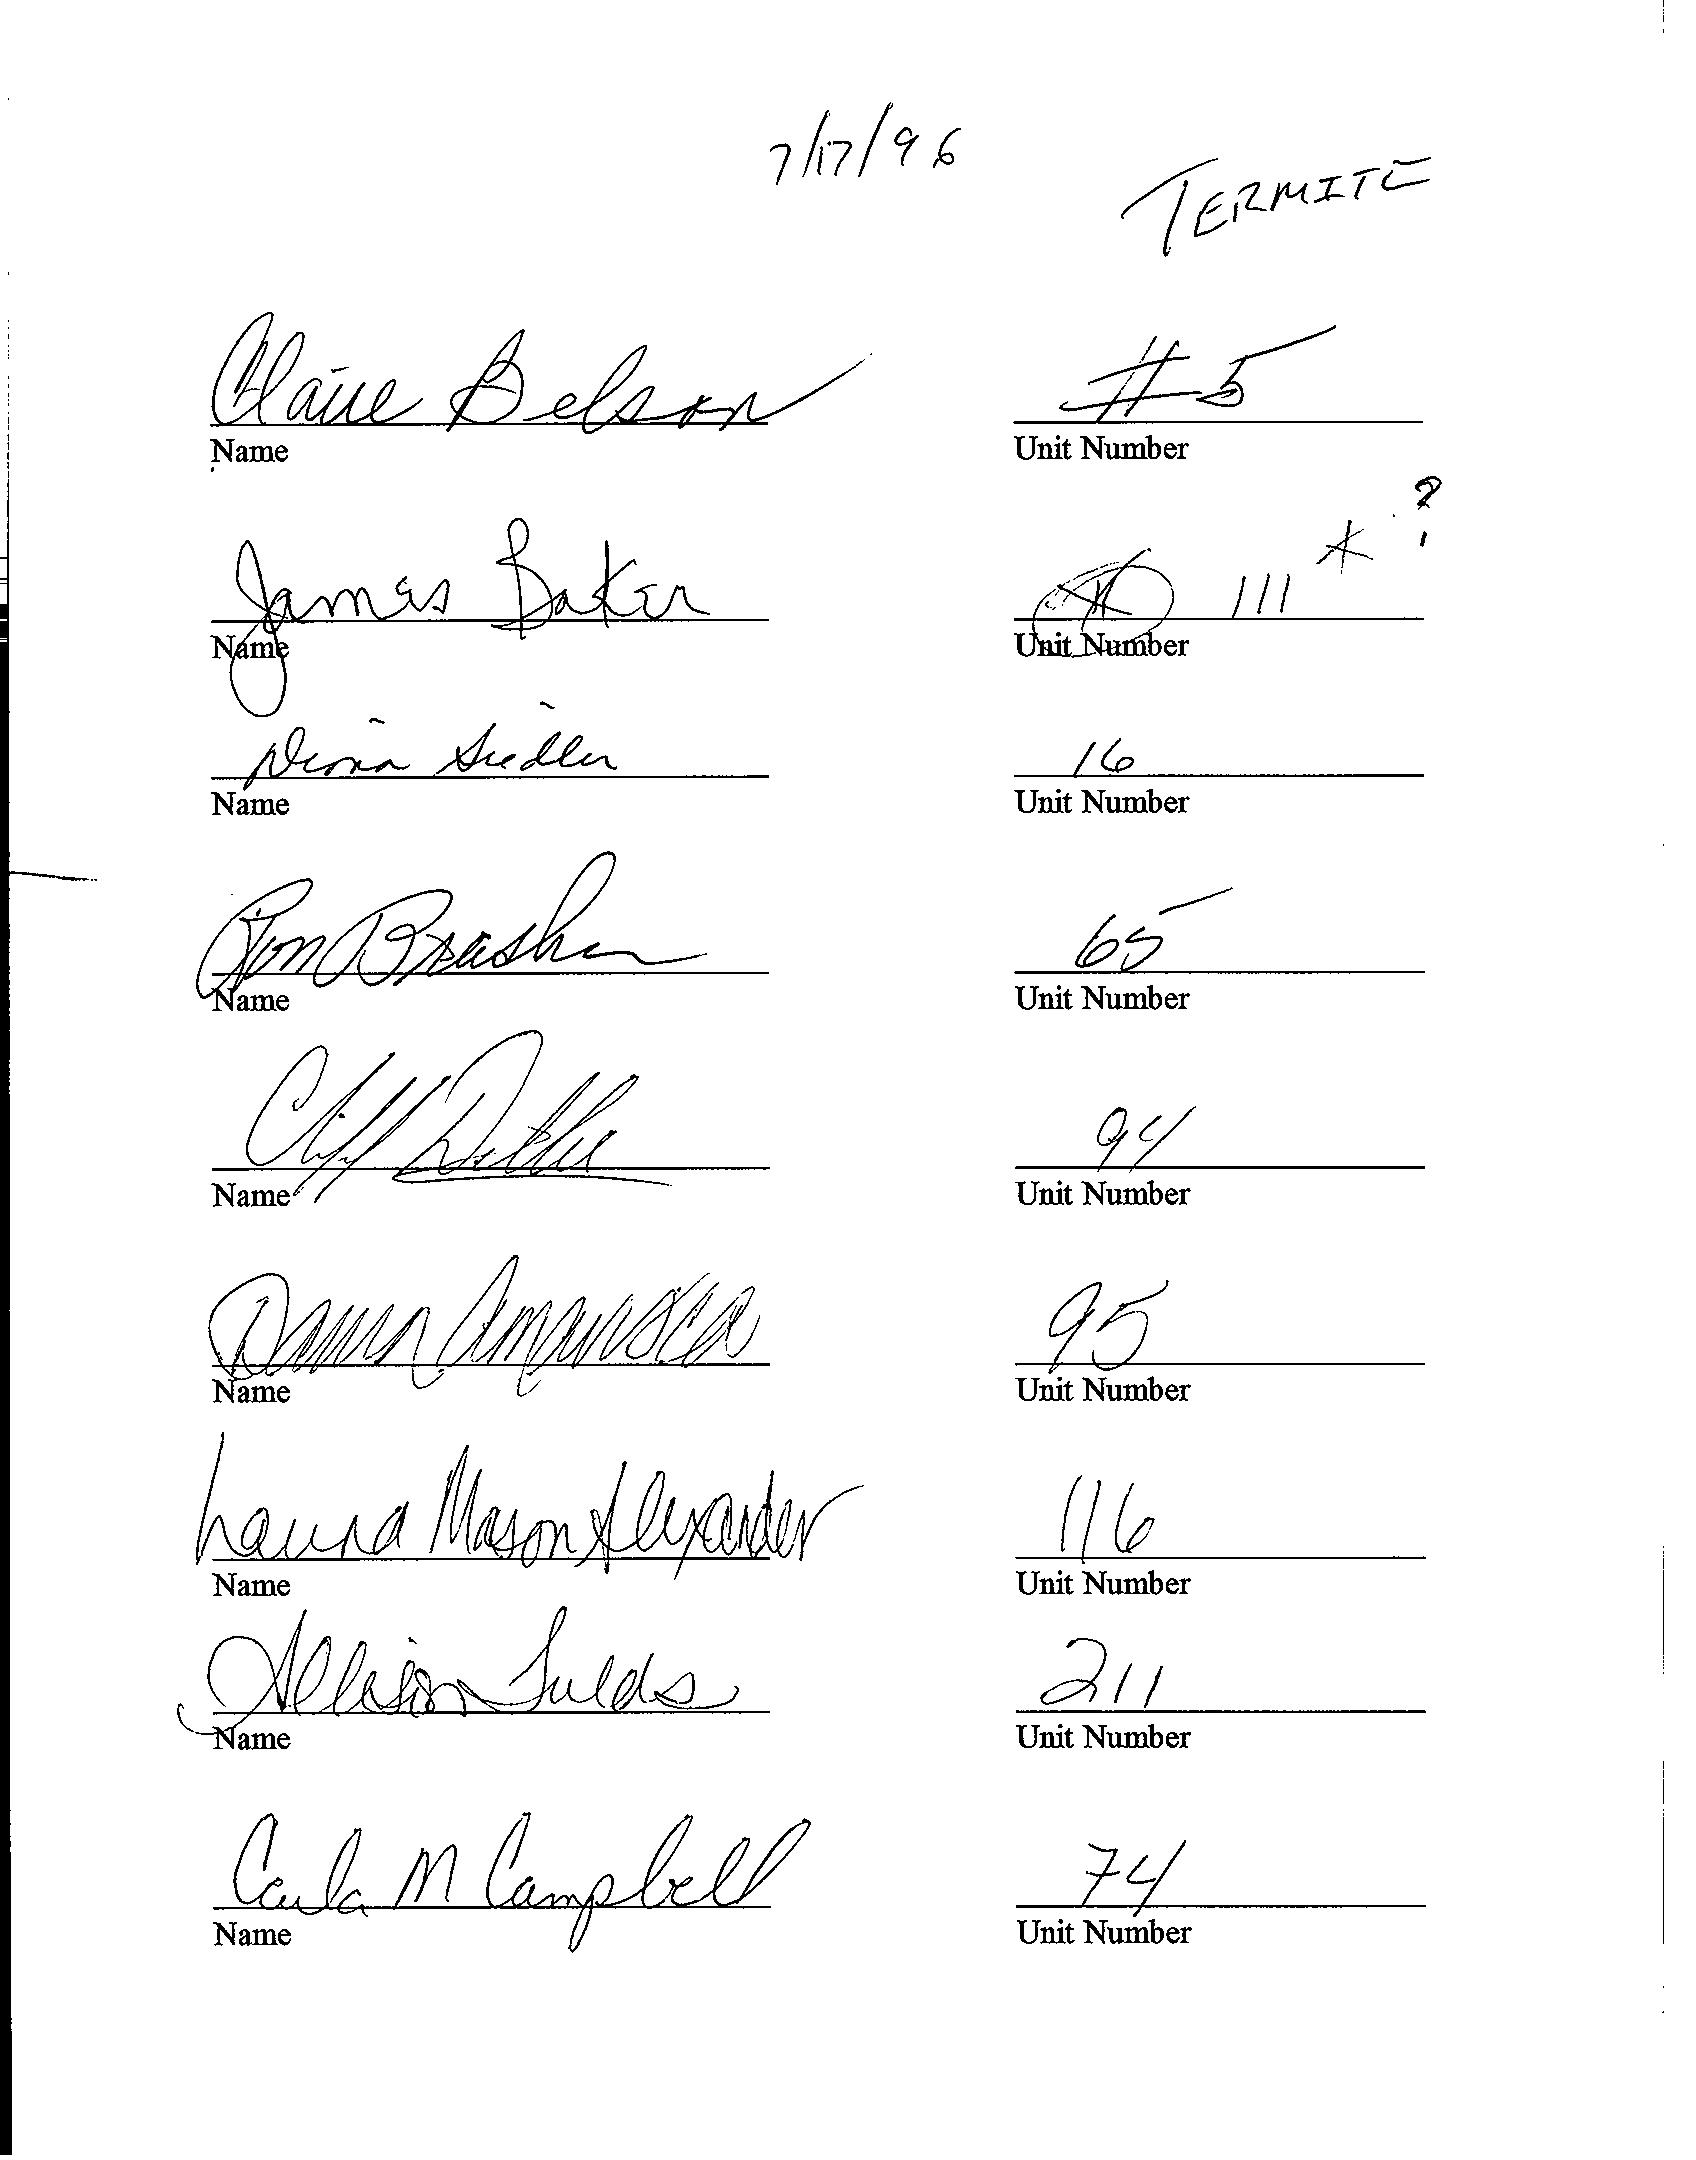 7/17/96
TERMITE
Claire Belson #5
Name Unit Number
?
James Baker 111 *
Name Unit Number
Diona Siedler 16
Name Unit Number
Ron Brasher 65
Name Unit Number
Cliff 94
Name Unit Number
95
Name Unit Number
Laura Mason Alexander 116
Name Unit Number
Allison Fulds 211
Name Unit Number
Carla M Campbell 74
Name Unit Number